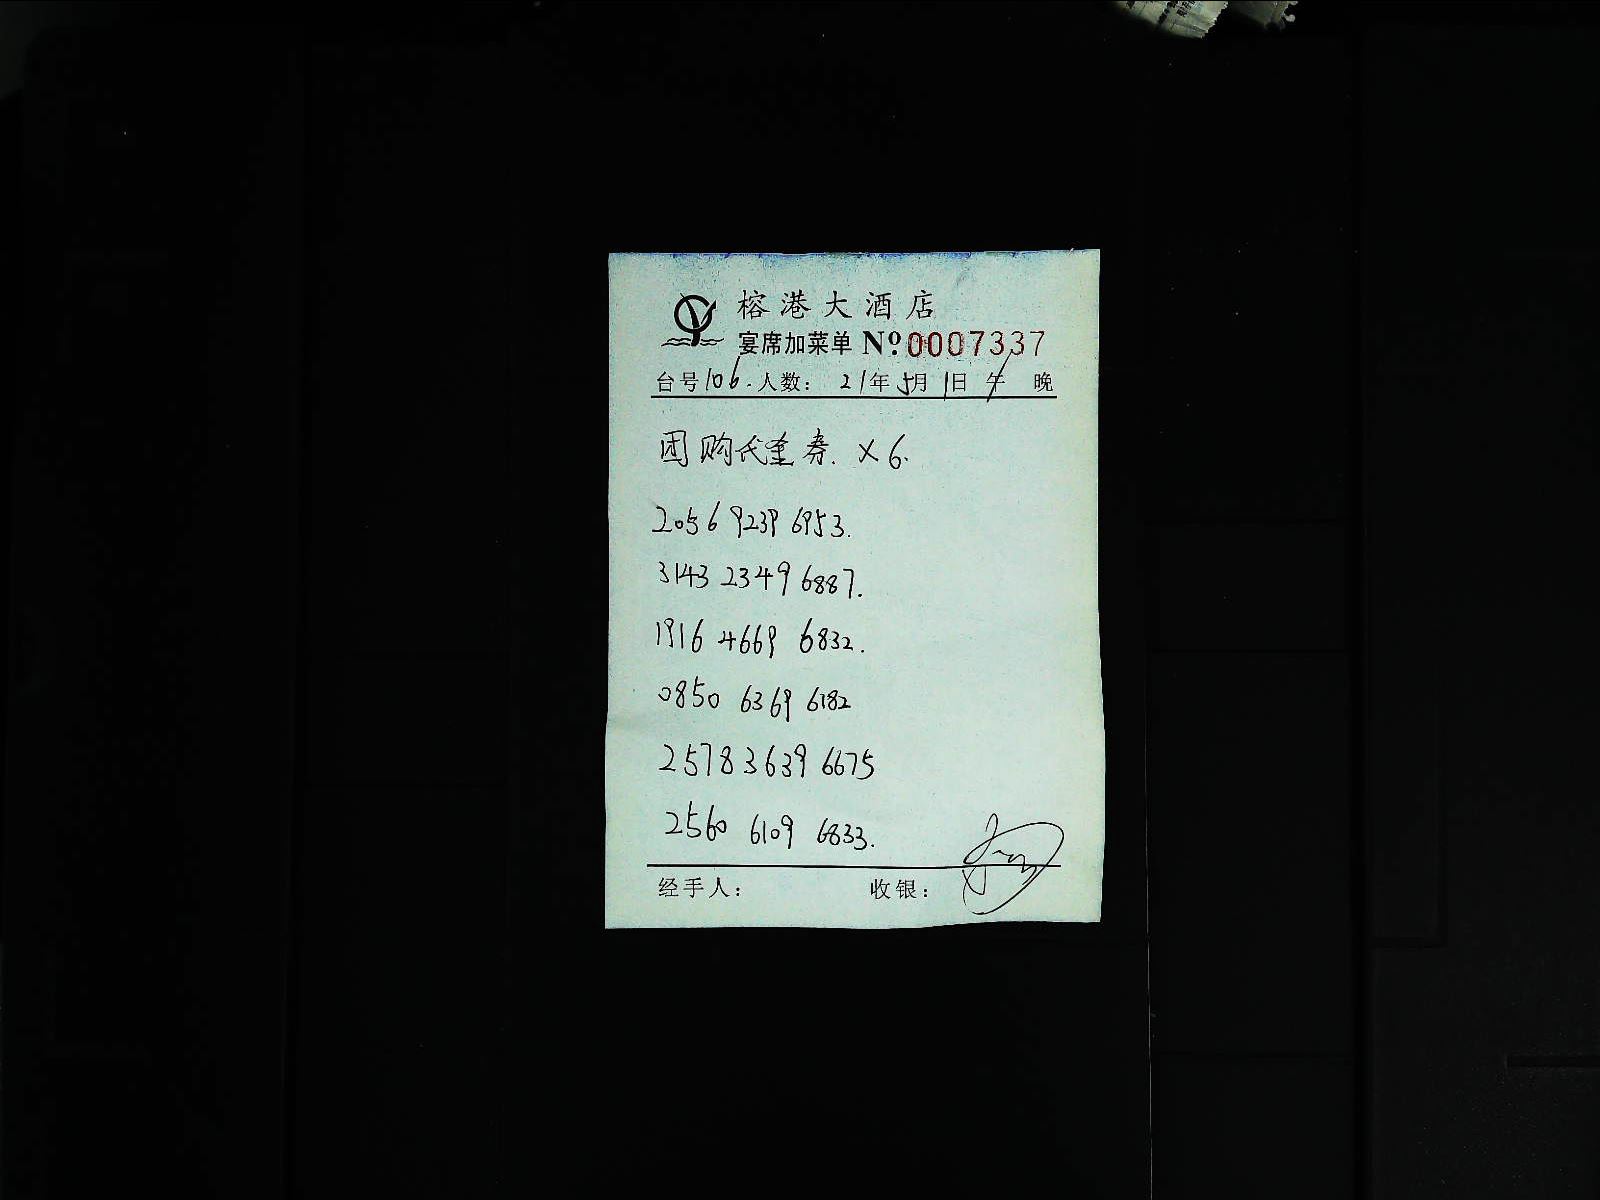 榕港大酒店
宴席加菜单 Nº 0007337
台号106. 人数: 21年5月1日 午 晚
团购代金券. ×6.
2056 9239 6953.
3143 2349 6887.
1916 4669 6832.
0850 6369 6182
2578 3639 6675
2560 6109 6833.
经手人: 收银: